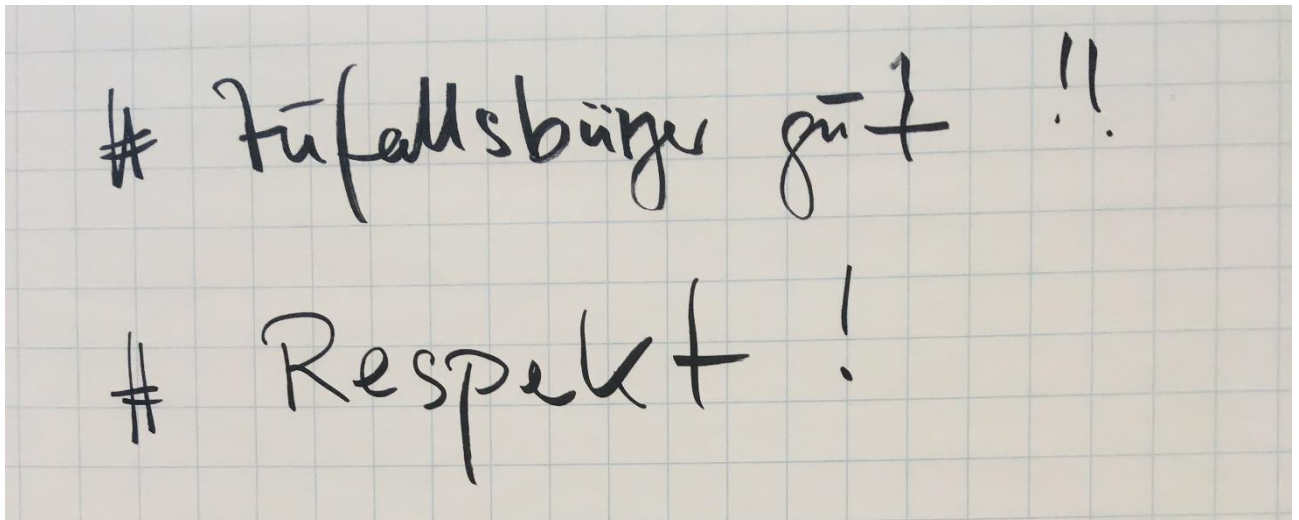 # Zufallsbürger gut !!
# Respekt !